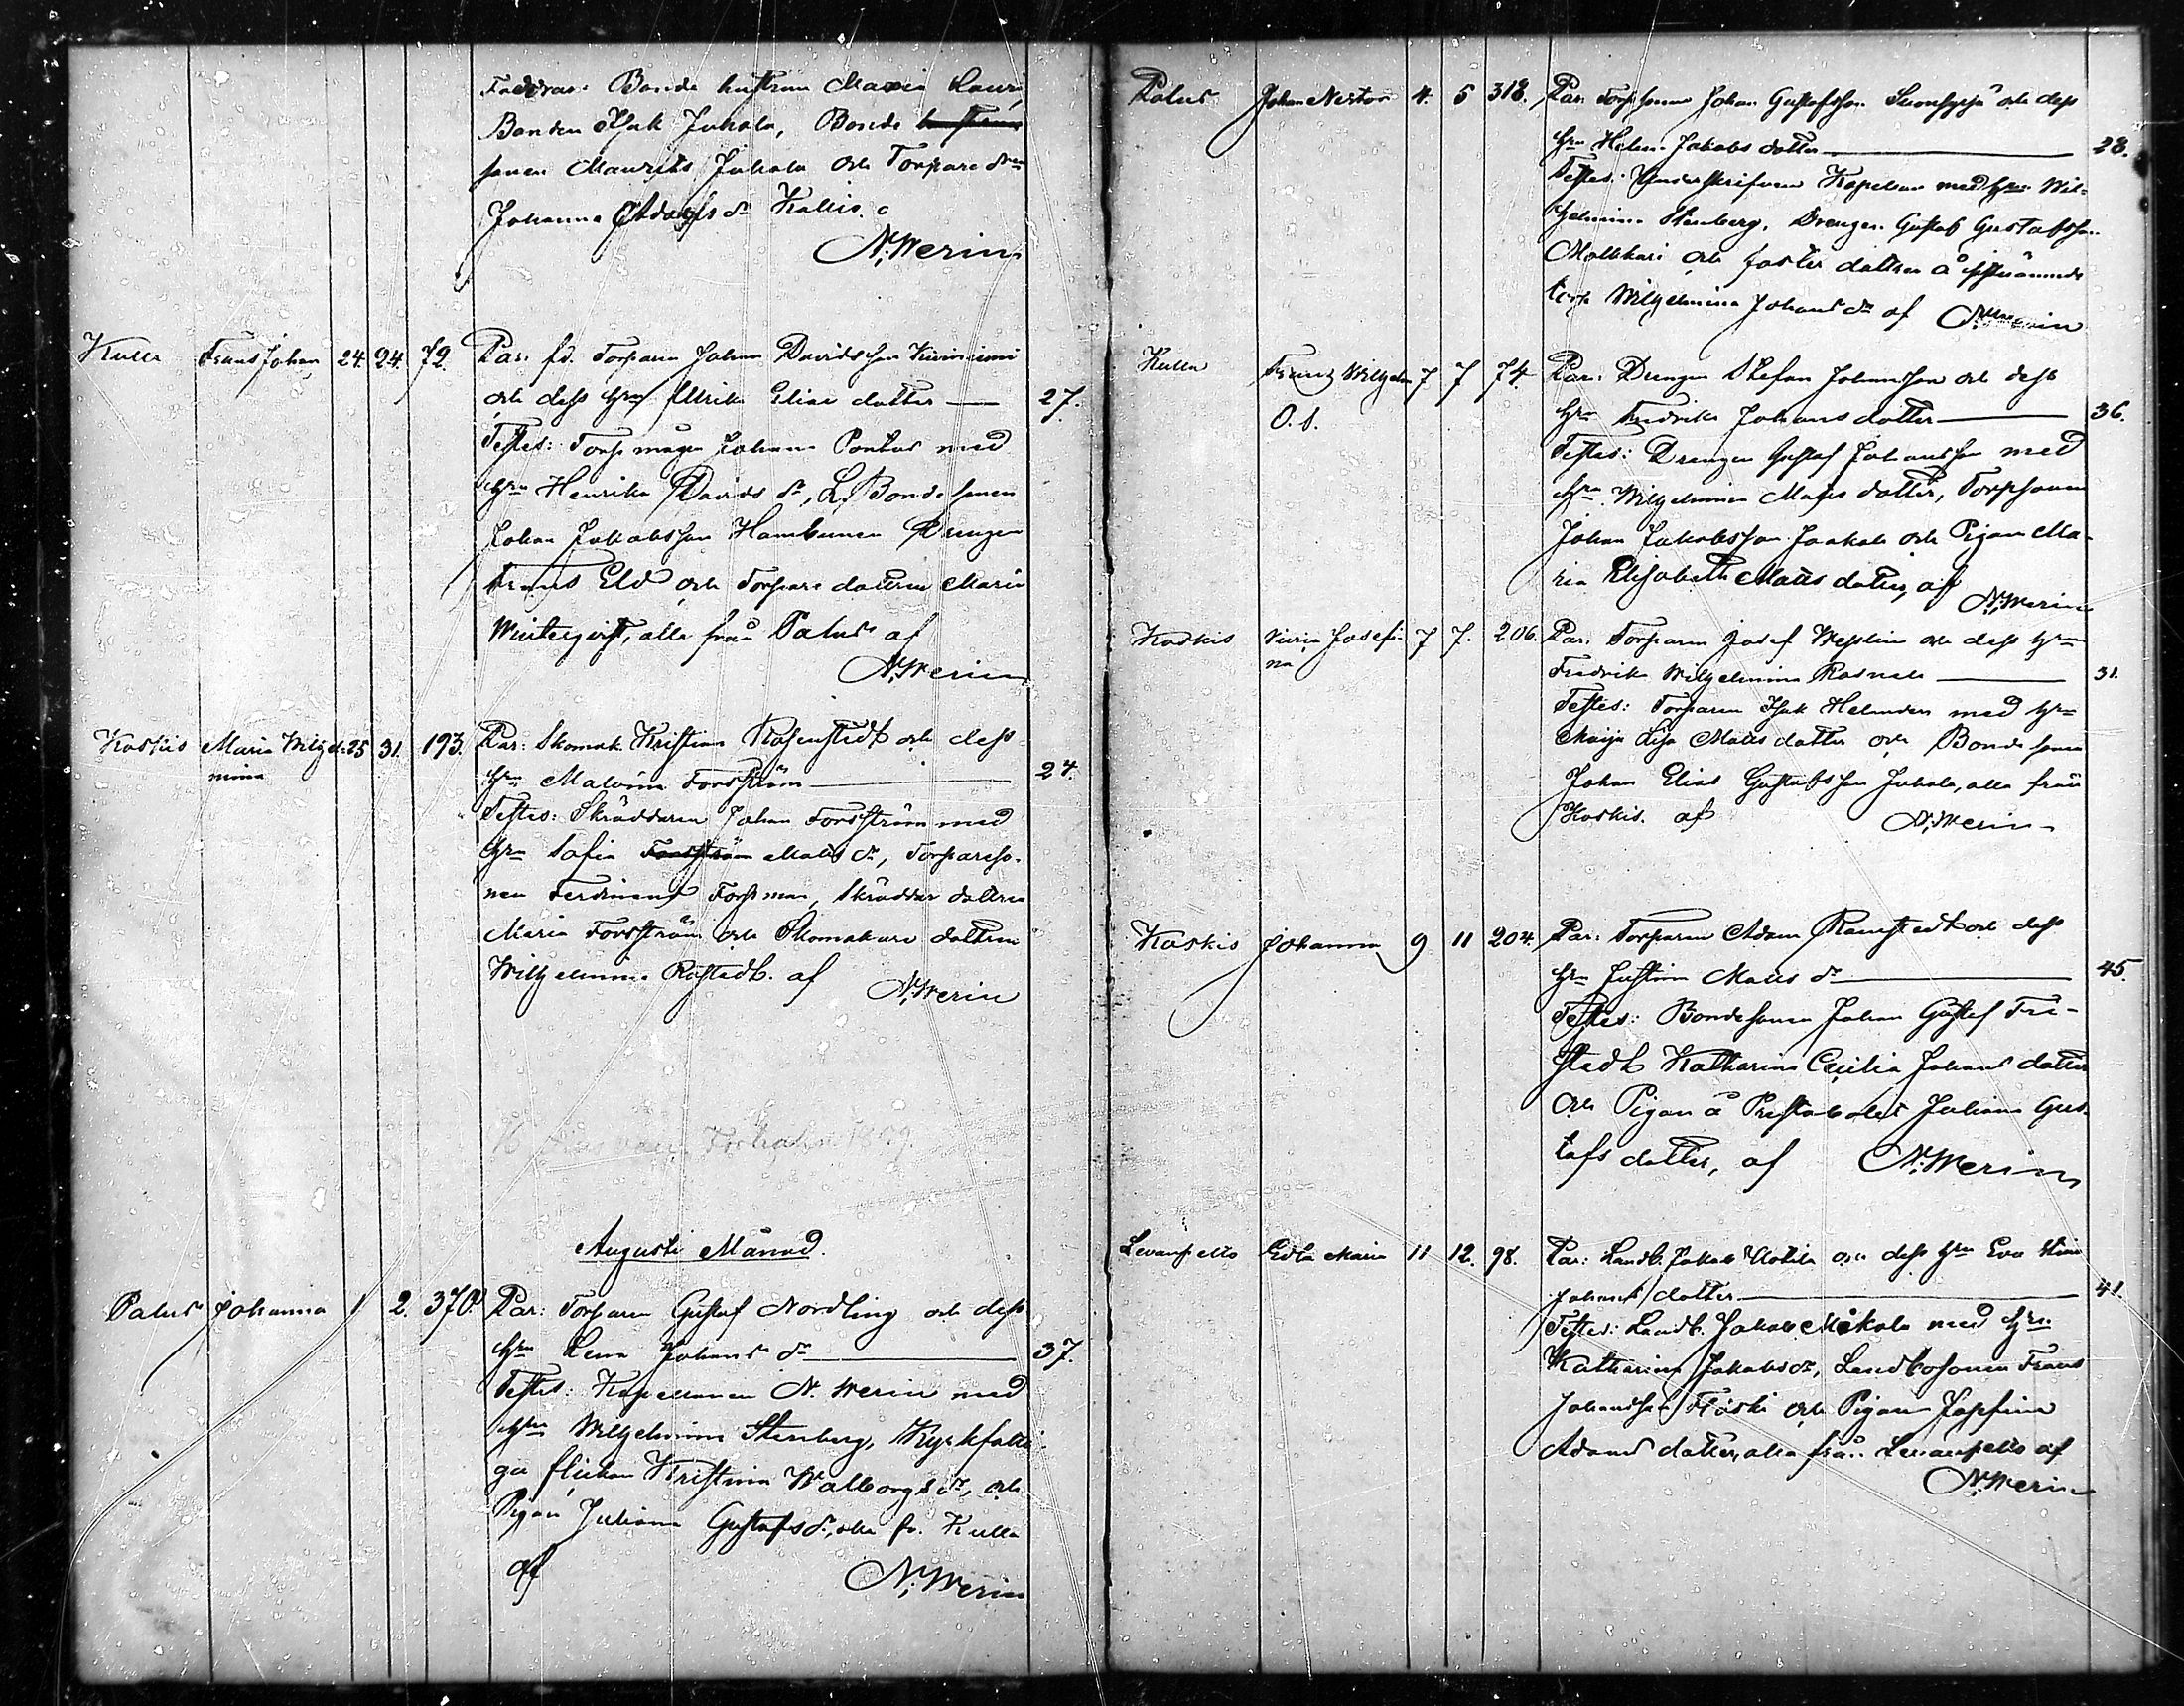 Faddrar: Bonde hustrun Maria Lauri
Bonden Isak Juhala, Bonde
sonen Maurits Juhala och Torpare drn
Johanna Adolfs dr Kallis.
N. Werin
Kulla Frans Johan 24. 24. 72. Par: fd. Torparen Johan Davidsson Kiviniemi
och dess hru Ulrika Elias dotter — 27.
Testes: Torp mågen Johan Pontus med
hru Henrika Davids dr, L. Bonde sonen
Johan Jakobsson Drengen
Frans Elo och Torpare dottren Maria
Winterqvist, alla från Palus af
N. Werin
Koskis Maria Wilhel- 25 31. 193. Par: Skomak. Kristian Rosenstedt och dess
mina hru Malvina Forsström — 24.
Testes: Skräddaren Johan Forsström med
hru Sofia Forsström Matts dr, Torpareso-
nen Ferdinand Forsman, Skräddar dottren
Maria Forsström och Skomakare dottren
Wilhelmina Rostedt. af N. Werin
1809.
Augusti Månad.
Palus Johanna 1 2. 370. Par: Torparen Gustaf Nordling och dess
hru Lena Johans dr — 37.
Testes: Kapellanen N. Werin med
hru Wilhelmina Stenberg, Kyrkfatti-
ga flickan Kristina Walborgs dr, och
Pigan Juliana Gustafs dr, alla fr. Kulla
af N. Werin
Palus Johan Nestor 4. 5 318. Par: Torp sonen Johan Gustafsson och dess
hru Helena Jakobs dotter — 28.
Testes: Underskrifven Kapellan med hru Wil-
helmina Stenberg, Drengen Gustaf Gustafsson
och foster dottren å
torp Wilhelmina Johans dr af N. Werin
Kulla Frans Wilhelm 7 7 74. Par: Drengen Stefan Johansson och dess
hru Fredrika Johans dotter — 36.
Testes: Drengen Gustaf Johansson med
hru Wilhelmina Matts dotter, Torpsonen
Johan Jakobsson Jaakola och Pigan Ma-
ria Elisabeth Matts dotter, af N. Werin
Koskis Maria Josefi- 7 7. 206. Par. Torparen Josef Westlin och dess hru
na Fredrika Wilhelmina Rosnell — 31.
Testes: Torparen Isak Helander med hru
Maija Lisa Matts dotter och Bonde sonen
Johan Elias Gustafsson Juhala, alla från
Koskis. af N. Werin
Koskis Johanna 9 11 204. Par: Torparen Adam Ramstedt och dess
hru Justina Matts dr — 45.
Testes: Bondesonen Johan Gustaf Fri-
stedt Katharina Cecilia Johans dotter
och Pigan å Juliana Gus-
tafs dotter, af N. Werin
Levanpelto Edla Maria 11 12. 98. Par: Landb. Jakob Uotila och dess hru Eva Stina
Johans dotter — 41.
Testes: Landb. Jakob Mikola med hru
Katharina Jakobs dr, Landbosonen Frans
Johansson och Pigan Josefina
Adams dotter, alla från Levanpelto af
N. Werin